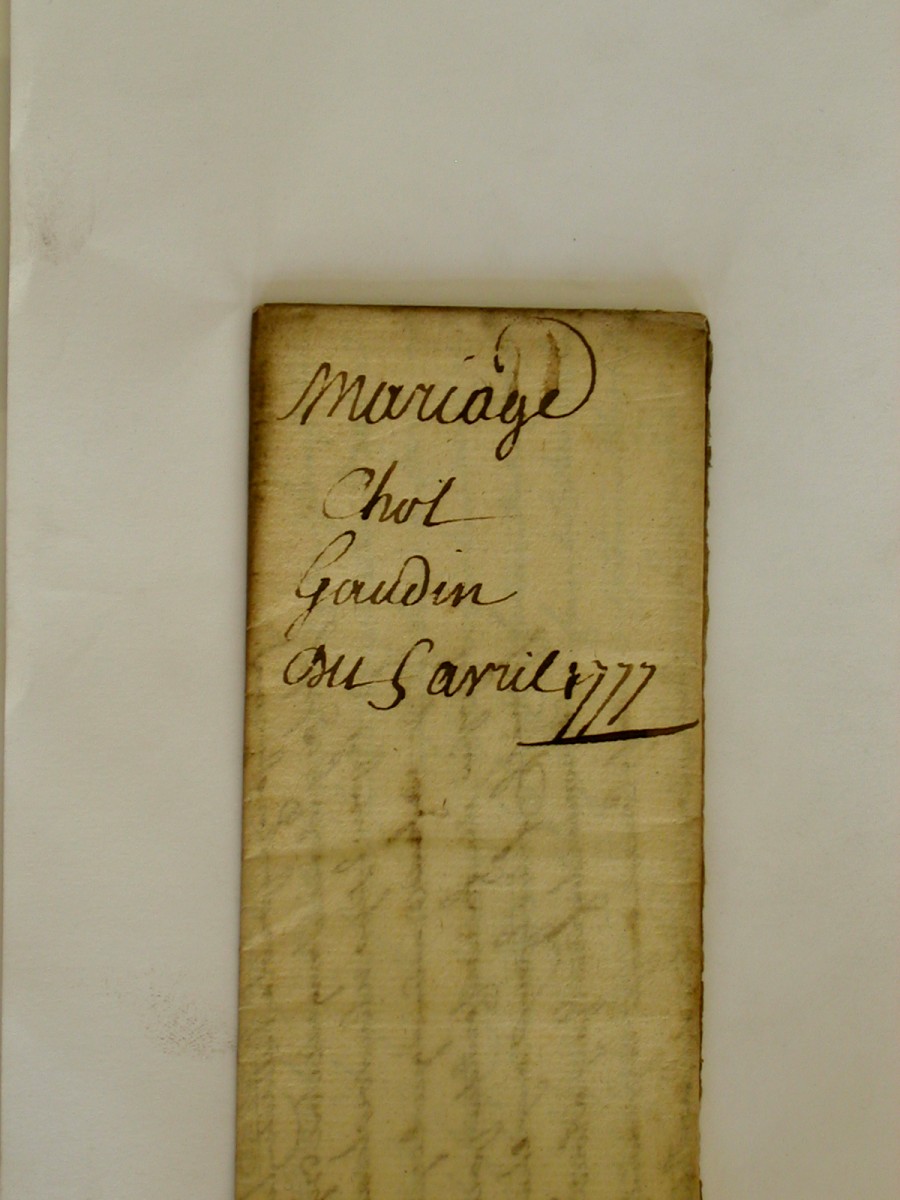 Mariage
Chol
Gaudin
Du 5 avril 1777